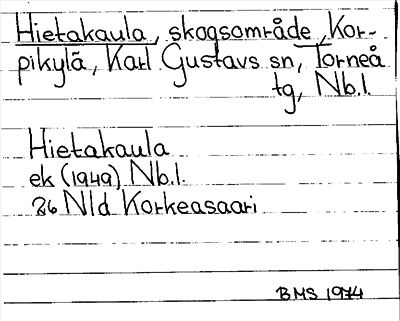 Hietakaula, skogsområde, Kor-
pikylä, Karl Gustavs sn, Torneå
tg, Nb.l.
Hietakaula
ek (1949) Nb.l.
26 Nld Korkeasaari
BMS 1974